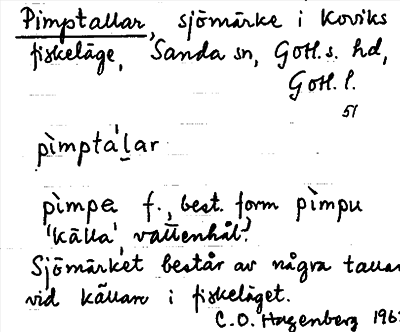 Pimptallar, sjömärke i Koviks
fiskeläge, Sanda sn, Gotl. s. hd,
Gotl. l.
51
pìmptàlar
pìmpa f., best. form pìmpu
'källa', vattenhål?
Sjömärket består av några tallar
vid källan i fiskeläget.
C.O. Hagenberg